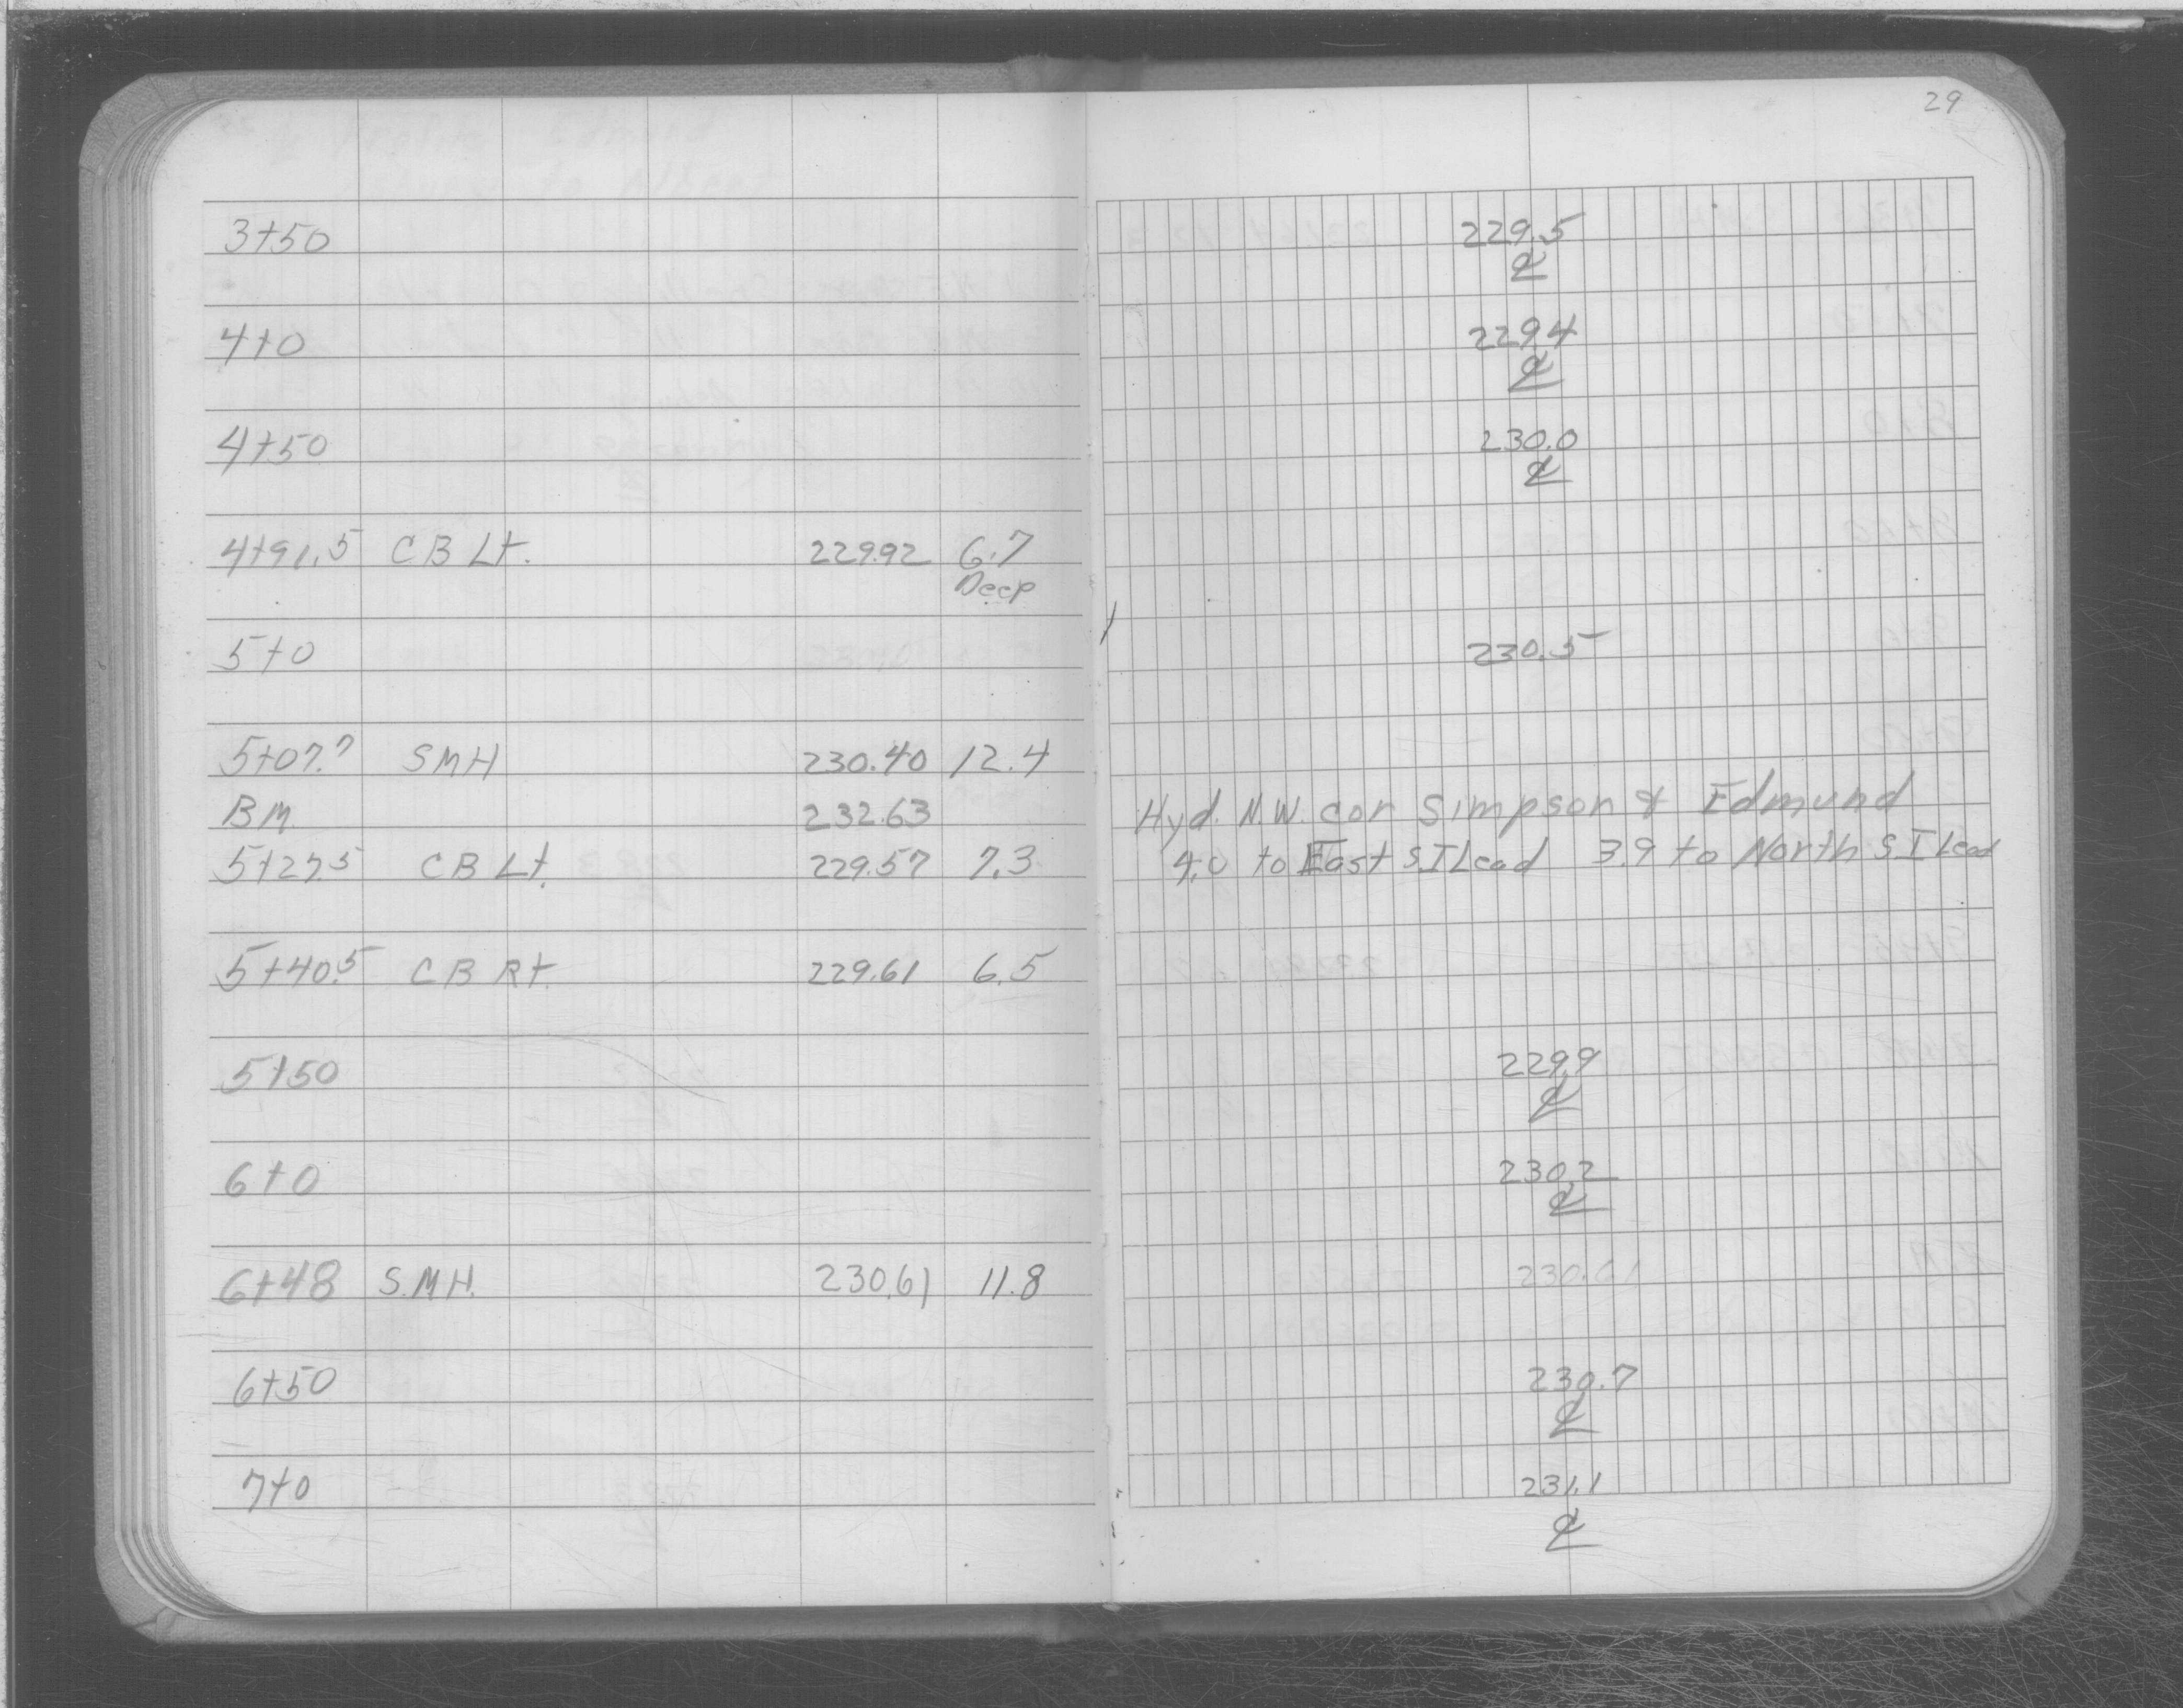 29
3+50 229.5
℄
4+0 229.4
℄
4+50 230.0
℄
4+91.5 CB Lt. 229.92 6.7
Deep
5+0 230.5
5+07.7 SMH 230.40 12.4
BM 232.63 Hyd. N.W. cor Simpson & Edmund
5+27.5 CB Lt. 229.57 7.3 4.0 to East S.I Lead 3.9 to North S I Lead
5+40.5 CB Rt. 229.61 6.5
5+50 229.9
℄
6+0 230.2
℄
6+48 S.M.H. 230.61 11.8 230.61
6+50 230.7
℄
7+0 231.1
℄